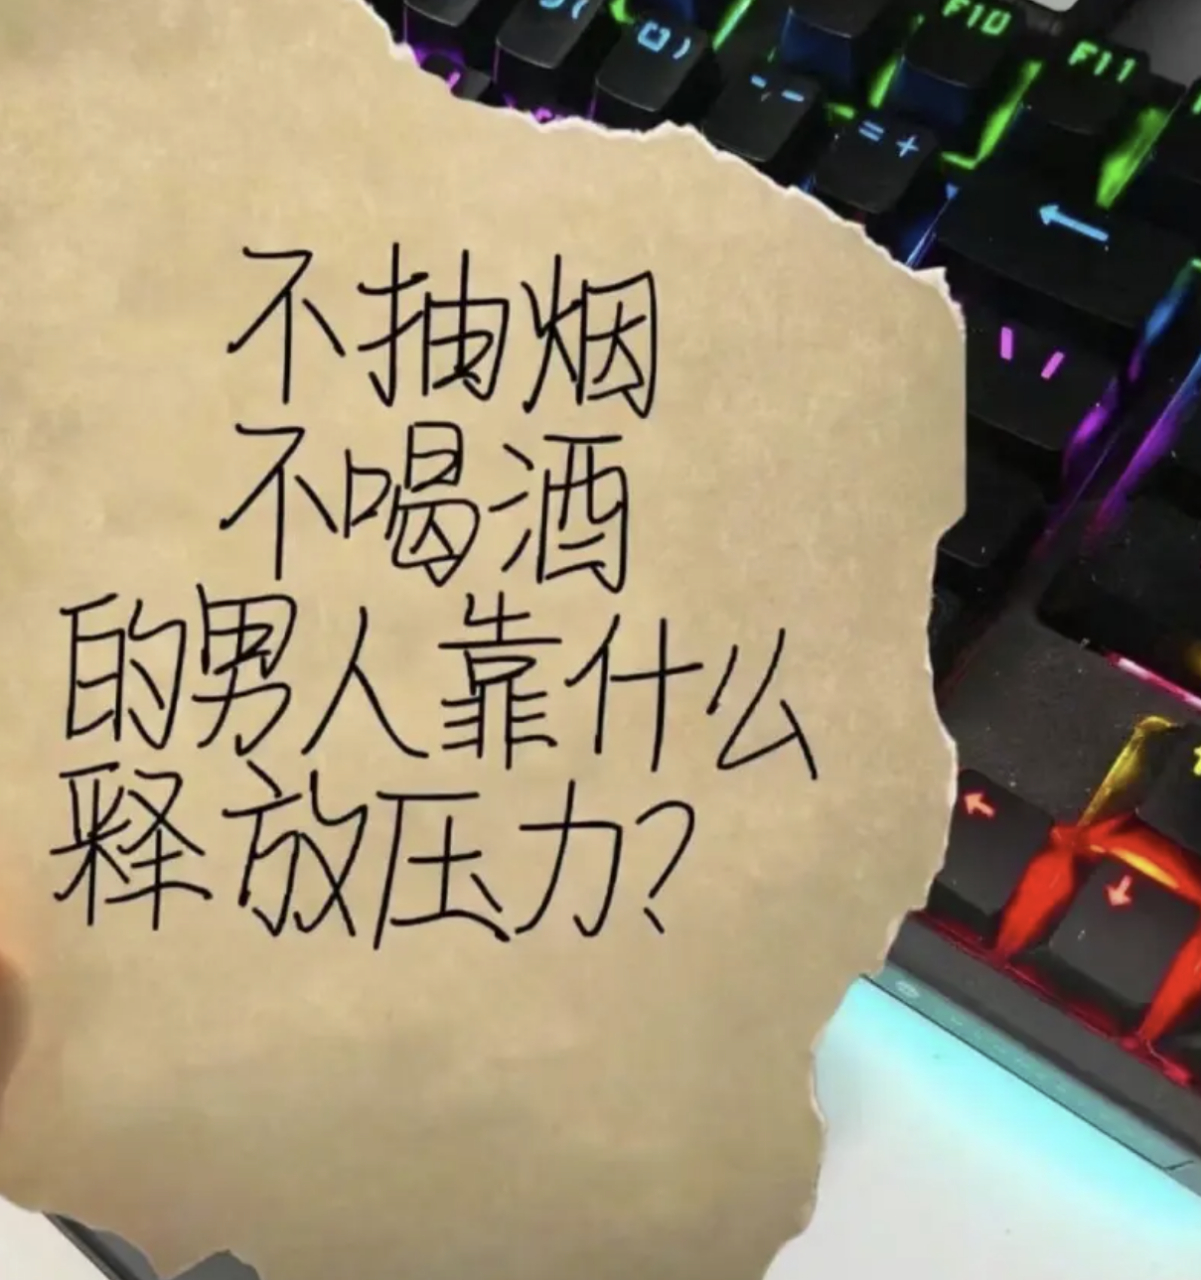 F10
F11
0)
- -
= +
←
←
↓
不抽烟
不喝酒
的男人靠什么
释放压力?